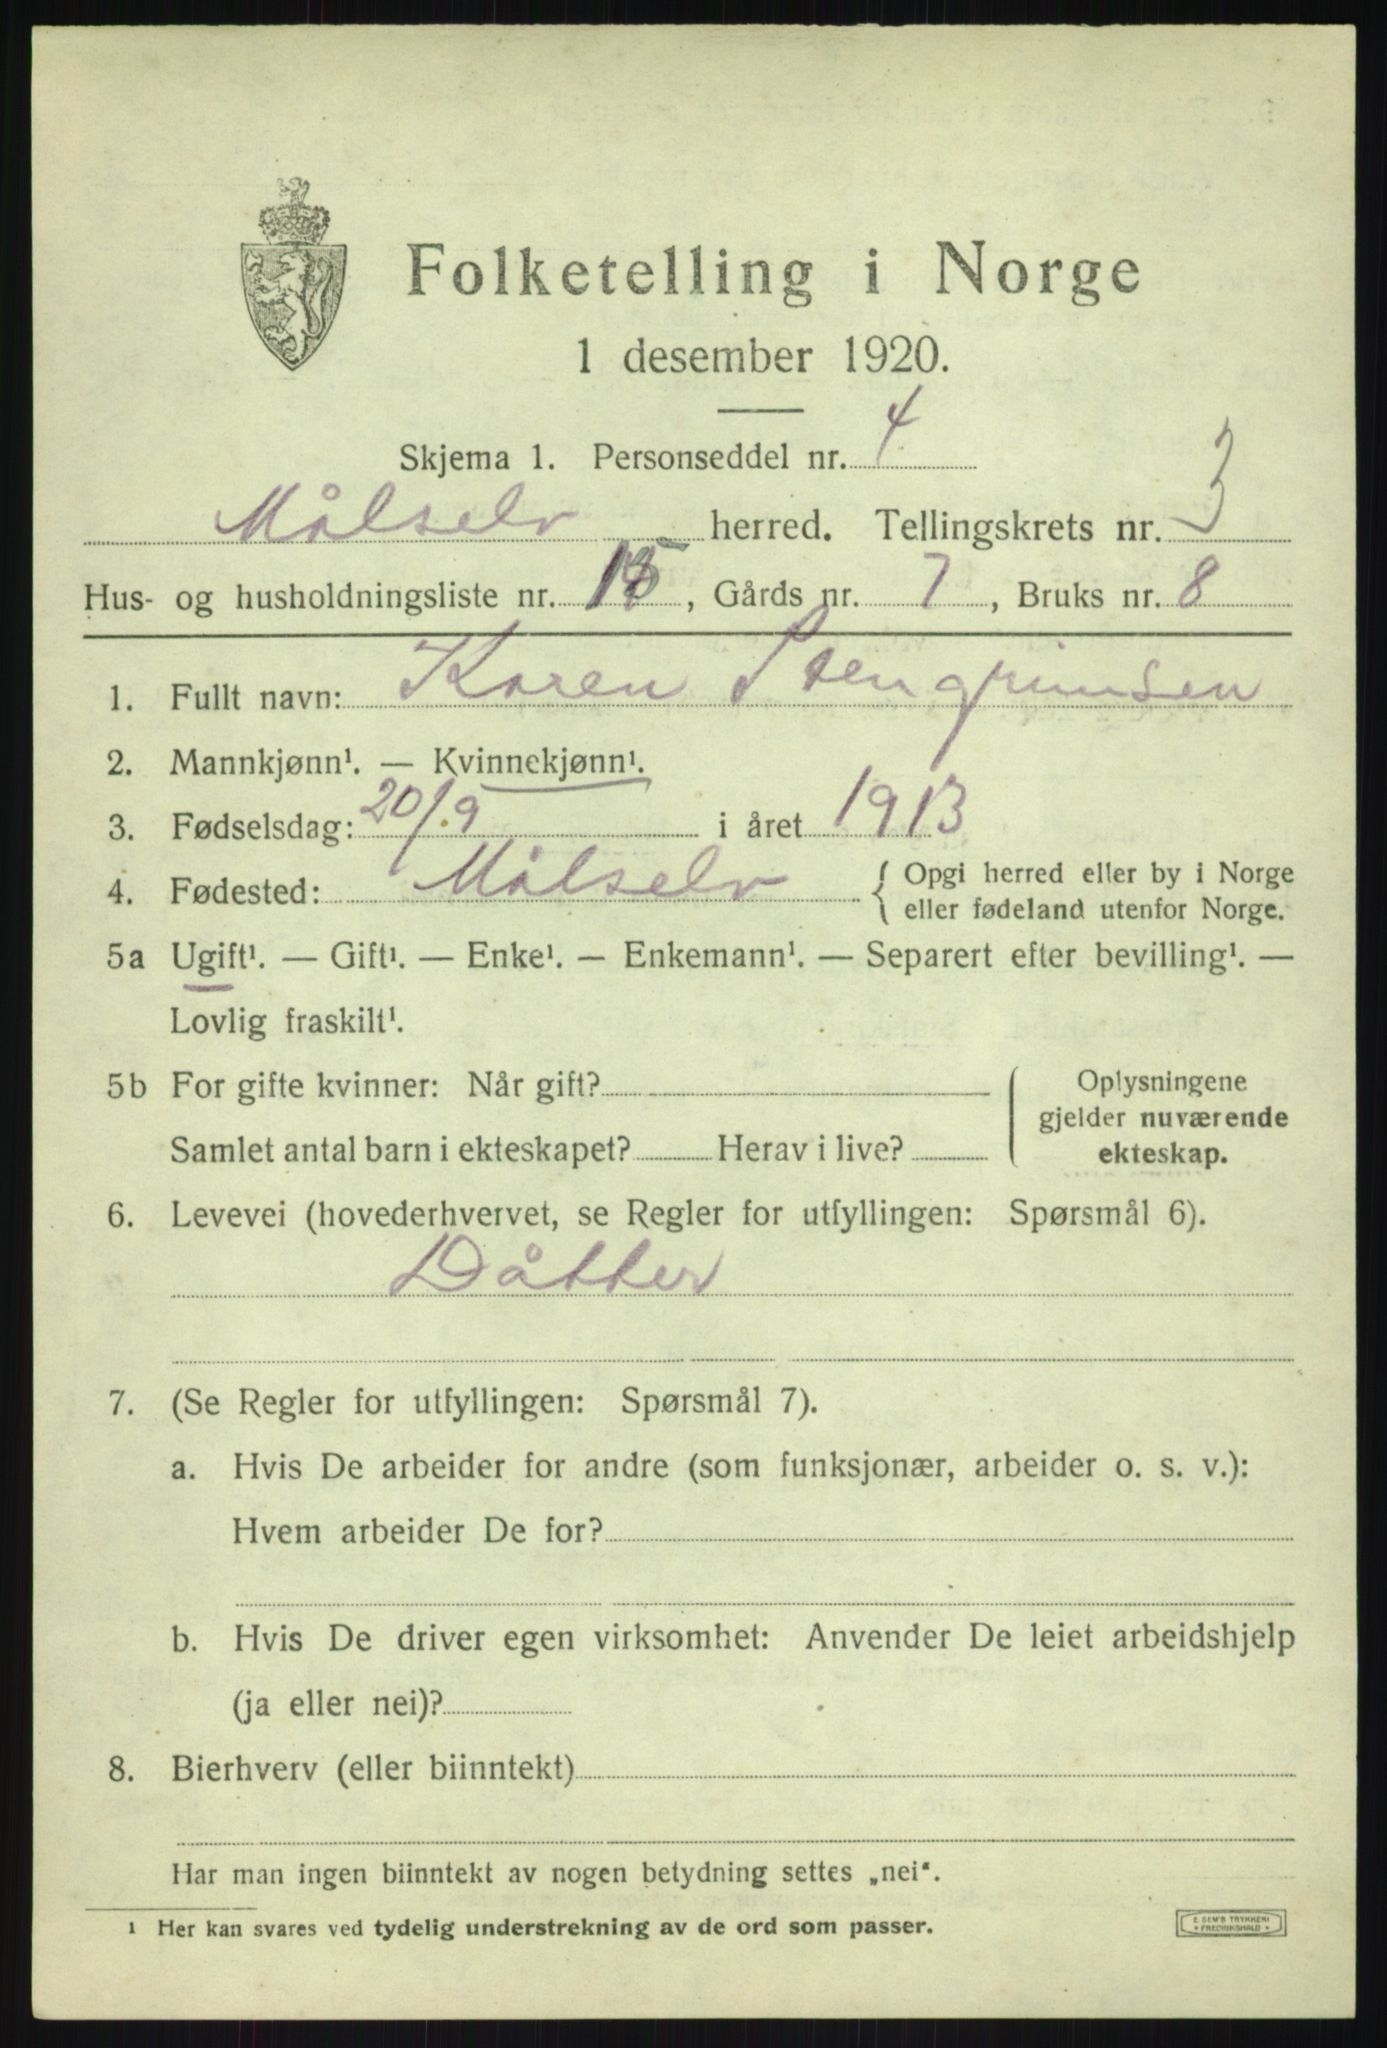 Folketelling i Norge
1 desember 1920.
Skjema 1. Personseddel nr. 4
Målselv herred. Tellingskrets nr. 3
Hus- og husholdningsliste nr. 15, Gårds nr. 7, Bruks nr. 8
1. Fullt navn: Karen Stengrimsen
2. Mannkjønn¹. — Kvinnekjønn¹.
3. Fødselsdag: 20/9 i året 1913
4. Fødested: Målselv { Opgi herred eller by i Norge
eller fødeland utenfor Norge.
5a Ugift¹. — Gift¹. — Enke¹. — Enkemann¹. — Separert efter bevilling¹. —
Lovlig fraskilt¹.
5b For gifte kvinner: Når gift? Oplysningene
gjelder nuværende
Samlet antal barn i ekteskapet? Herav i live? ekteskap.
6. Levevei (hovederhvervet, se Regler for utfyllingen: Spørsmål 6).
Dåtter
7. (Se Regler for utfyllingen: Spørsmål 7).
a. Hvis De arbeider for andre (som funksjonær, arbeider o. s. v.):
Hvem arbeider De for?
b. Hvis De driver egen virksomhet: Anvender De leiet arbeidshjelp
(ja eller nei)?
8. Bierhverv (eller biinntekt)
Har man ingen biinntekt av nogen betydning settes „nei“.
¹ Her kan svares ved tydelig understrekning av de ord som passer.
E. SEM'S TRYKKERI
* FREDRIKSHALD *